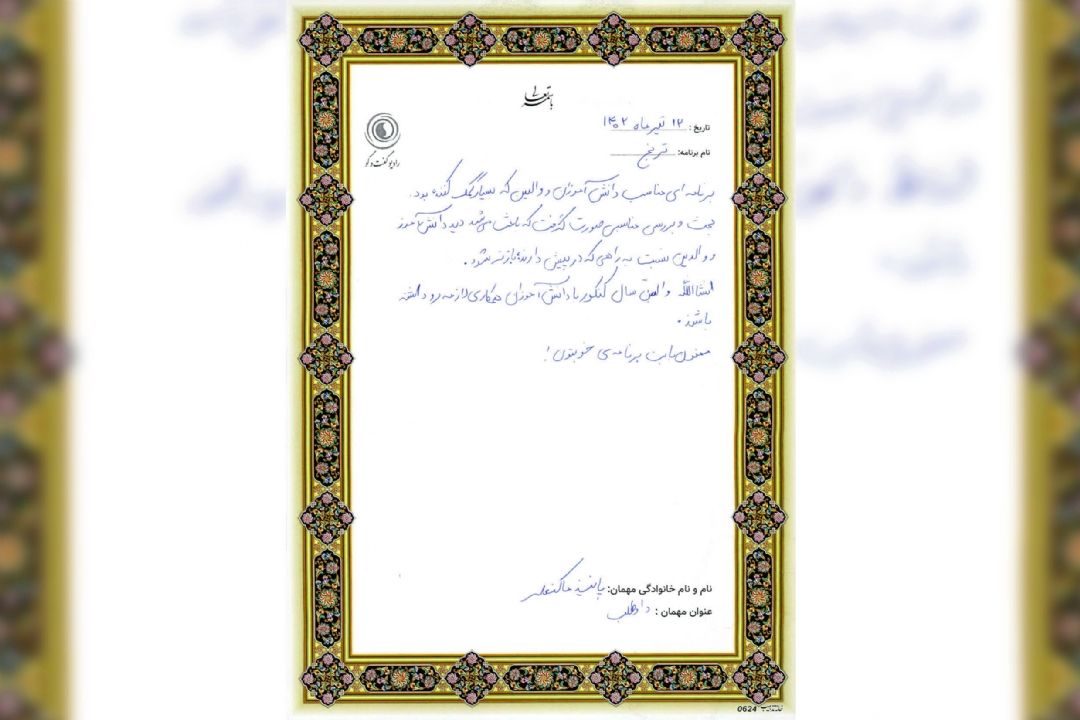 باسمه تعالی
رادیو گفت و گو
تاریخ : ۱۲ تیر ماه ۱۴۰۲
نام برنامه: ترنج
برنامه ای مناسب دانش آموزان و والدین که بسیار کمک کننده بود.
بحث و بررسی مناسبی صورت گرفت که باعث می‌شد دید دانش آموز
و والدین نسبت به راهی که در پیش دارند بازتر شود.
انشاالله والدین سال کنکور با دانش آموزان همکاری لازمه رو داشته
باشند.
ممنون بابت برنامه‌ی خوبتون!
نام و نام خانوادگی مهمان:
عنوان مهمان : داوطلب
0624